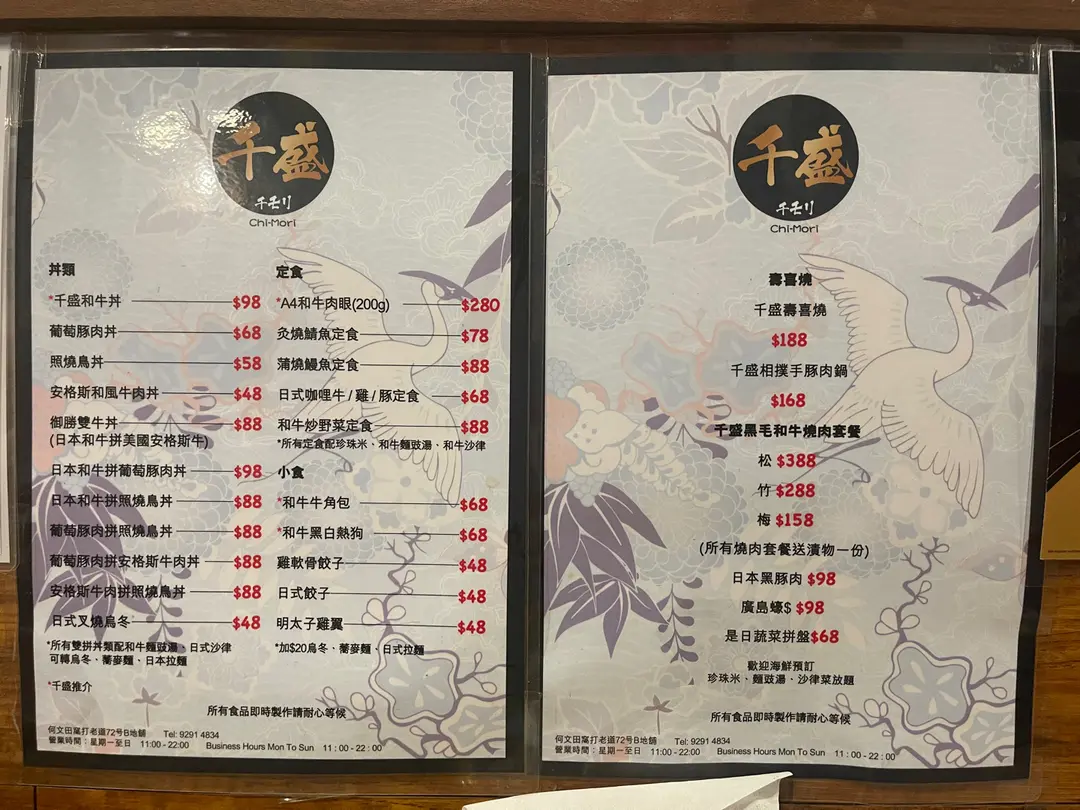 千盛
千壬刂
Chi-Mori
丼類
*千盛和牛丼 $98
葡萄豚肉丼 $68
照燒鳥丼 $58
安格斯和風牛肉丼 $48
御勝雙牛丼 $88
(日本和牛拼美國安格斯牛)
日本和牛拼葡萄豚肉丼 $98
日本和牛拼照燒鳥丼 $88
葡萄豚肉拼照燒鳥丼 $88
葡萄豚肉拼安格斯牛肉丼 $88
安格斯牛肉拼照燒鳥丼 $88
日式叉燒烏冬 $48
*所有雙拼丼類配和牛麵豉湯、日式沙律
可轉烏冬、蕎麥麵、日本拉麵
*千盛推介
定食
*A4和牛肉眼(200g) $280
灸燒鯖魚定食 $78
蒲燒鰻魚定食 $88
日式咖哩牛/雞/豚定食 $68
和牛炒野菜定食 $88
*所有定食配珍珠米、和牛麵豉湯、和牛沙律
小食
*和牛牛角包 $68
*和牛黑白熱狗 $68
雞軟骨餃子 $48
日式餃子 $48
明太子雞翼 $48
*加$20烏冬、蕎麥麵、日式拉麵
所有食品即時製作請耐心等候
何文田窩打老道72號B地舖 Tel: 9291 4834
營業時間：星期一至日 11:00-22:00 Business Hours Mon To Sun 11 : 00 - 22 : 00
千盛
千壬刂
Chi-Mori
壽喜燒
千盛壽喜燒
$188
千盛相撲手豚肉鍋
$168
千盛黑毛和牛燒肉套餐
松 $388
竹 $288
梅 $158
(所有燒肉套餐送漬物一份)
日本黑豚肉 $98
廣島蠔$ $98
是日蔬菜拼盤$68
歡迎海鮮預訂
珍珠米、麵豉湯、沙律菜放題
所有食品即時製作請耐心等候
何文田窩打老道72號B地舖 Tel: 9291 4834
營業時間：星期一至日 11:00-22:00 Business Hours Mon To Sun 11 : 00 - 22 : 00